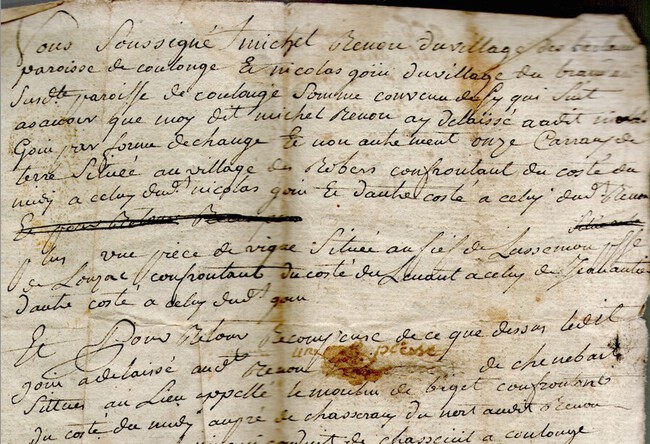 Nous Soussigné michel Renou du village des
paroisse de coulonge Et nicolas goin du village du
Susdte paroisse de coulonge Somme convenu de Sy qui Suit
asavoir que moy dit michel Renou ay delaissé audit
Goin par forme dechange Et non autrement onze Carraux de
terre Situeé au village des Robers confrontant du costé du
midy a celuy dudt nicolas goin Et dautre costé a celuy dudt Renou
plus une pièce de vigne Situeé au fief de Lassemon psse
de Lonzac, confrontant du costé du Levant a celuy de
dautre costé a celuy dudt goin
Et Pour Retour Recompense de ce que dessus ledit
goin a delaissé audt Renou une piesse de chenebait
Sittues au Lieu appellé le moulin de biget confrontant
du costé du midy au pré de chasseray du nort audit Renou
conduit de chassiuil a coulonge